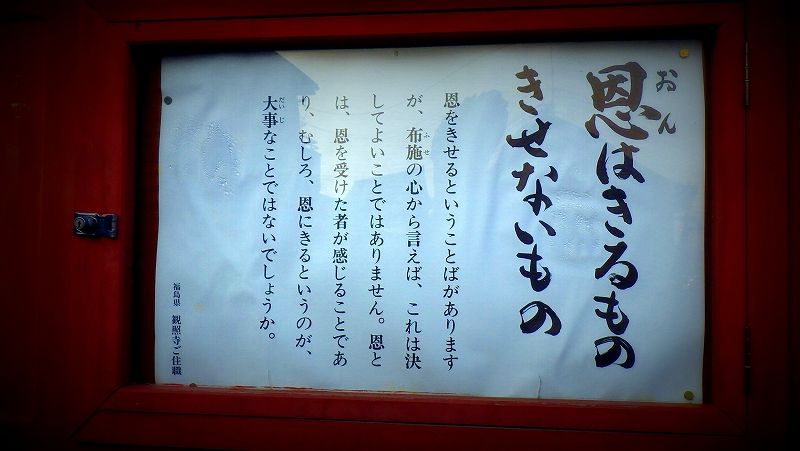 恩はきるもの
きせないもの
恩をきせるということばがあります
が、布施の心から言えば、これは決
してよいことではありません。恩と
は、恩を受けた者が感じることであ
り、むしろ、恩にきるというのが、
大事なことではないでしょうか。
福島県 観照寺ご住職